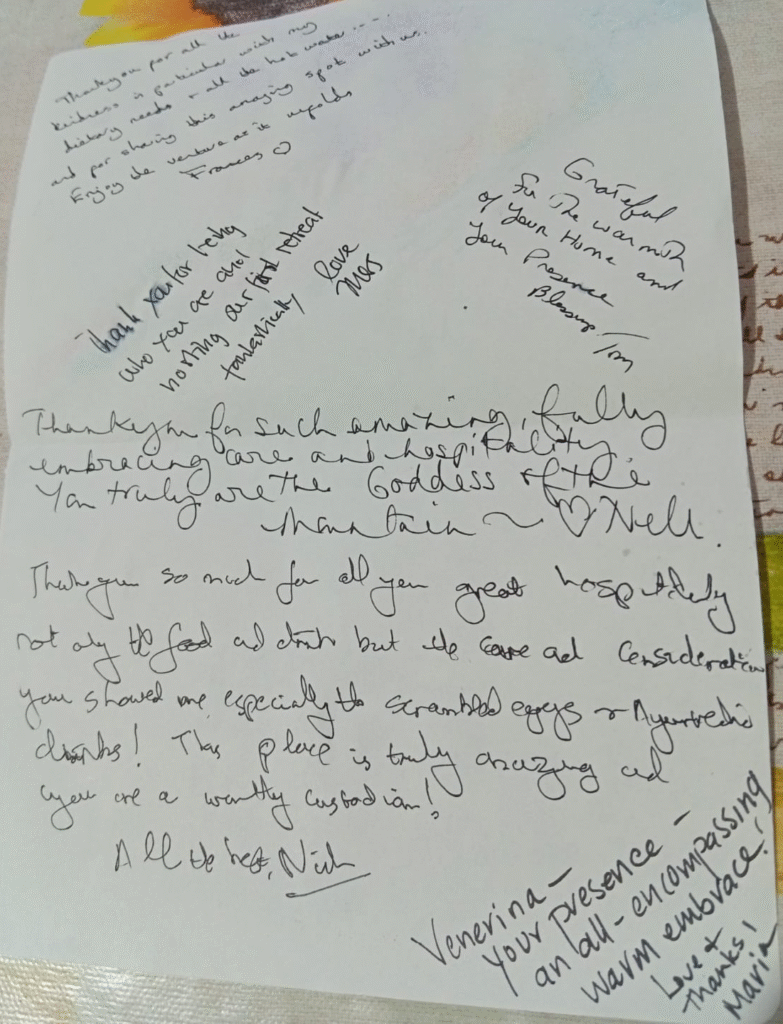 Thankyou for all the
kindness in particular with my
dietary needs + all the hot water ....
and for sharing this amazing spot with us.
Enjoy the venture as it unfolds
Frances ♡
Grateful
For The warmth
of Your Home and
Your Presence
Blessings Tom
Thank you for being
who you are and
hosting our first retreat
fantastically
love
Mags
Thankyou for such amazing, fully
embracing care and hospitality.
You truly are the Goddess of the
Mountain ~ ♡ Nell.
Thankyou so much for all your great hospitality
not only the food and drink but the care and consideration
you showed me especially the scrambled eggs + Ayurvedic
drinks! This place is truly amazing and
you are a worthy custodian!
All the best, Nick
Venerina –
your presence –
an all-encompassing
warm embrace!
Love +
Thanks!
Maria